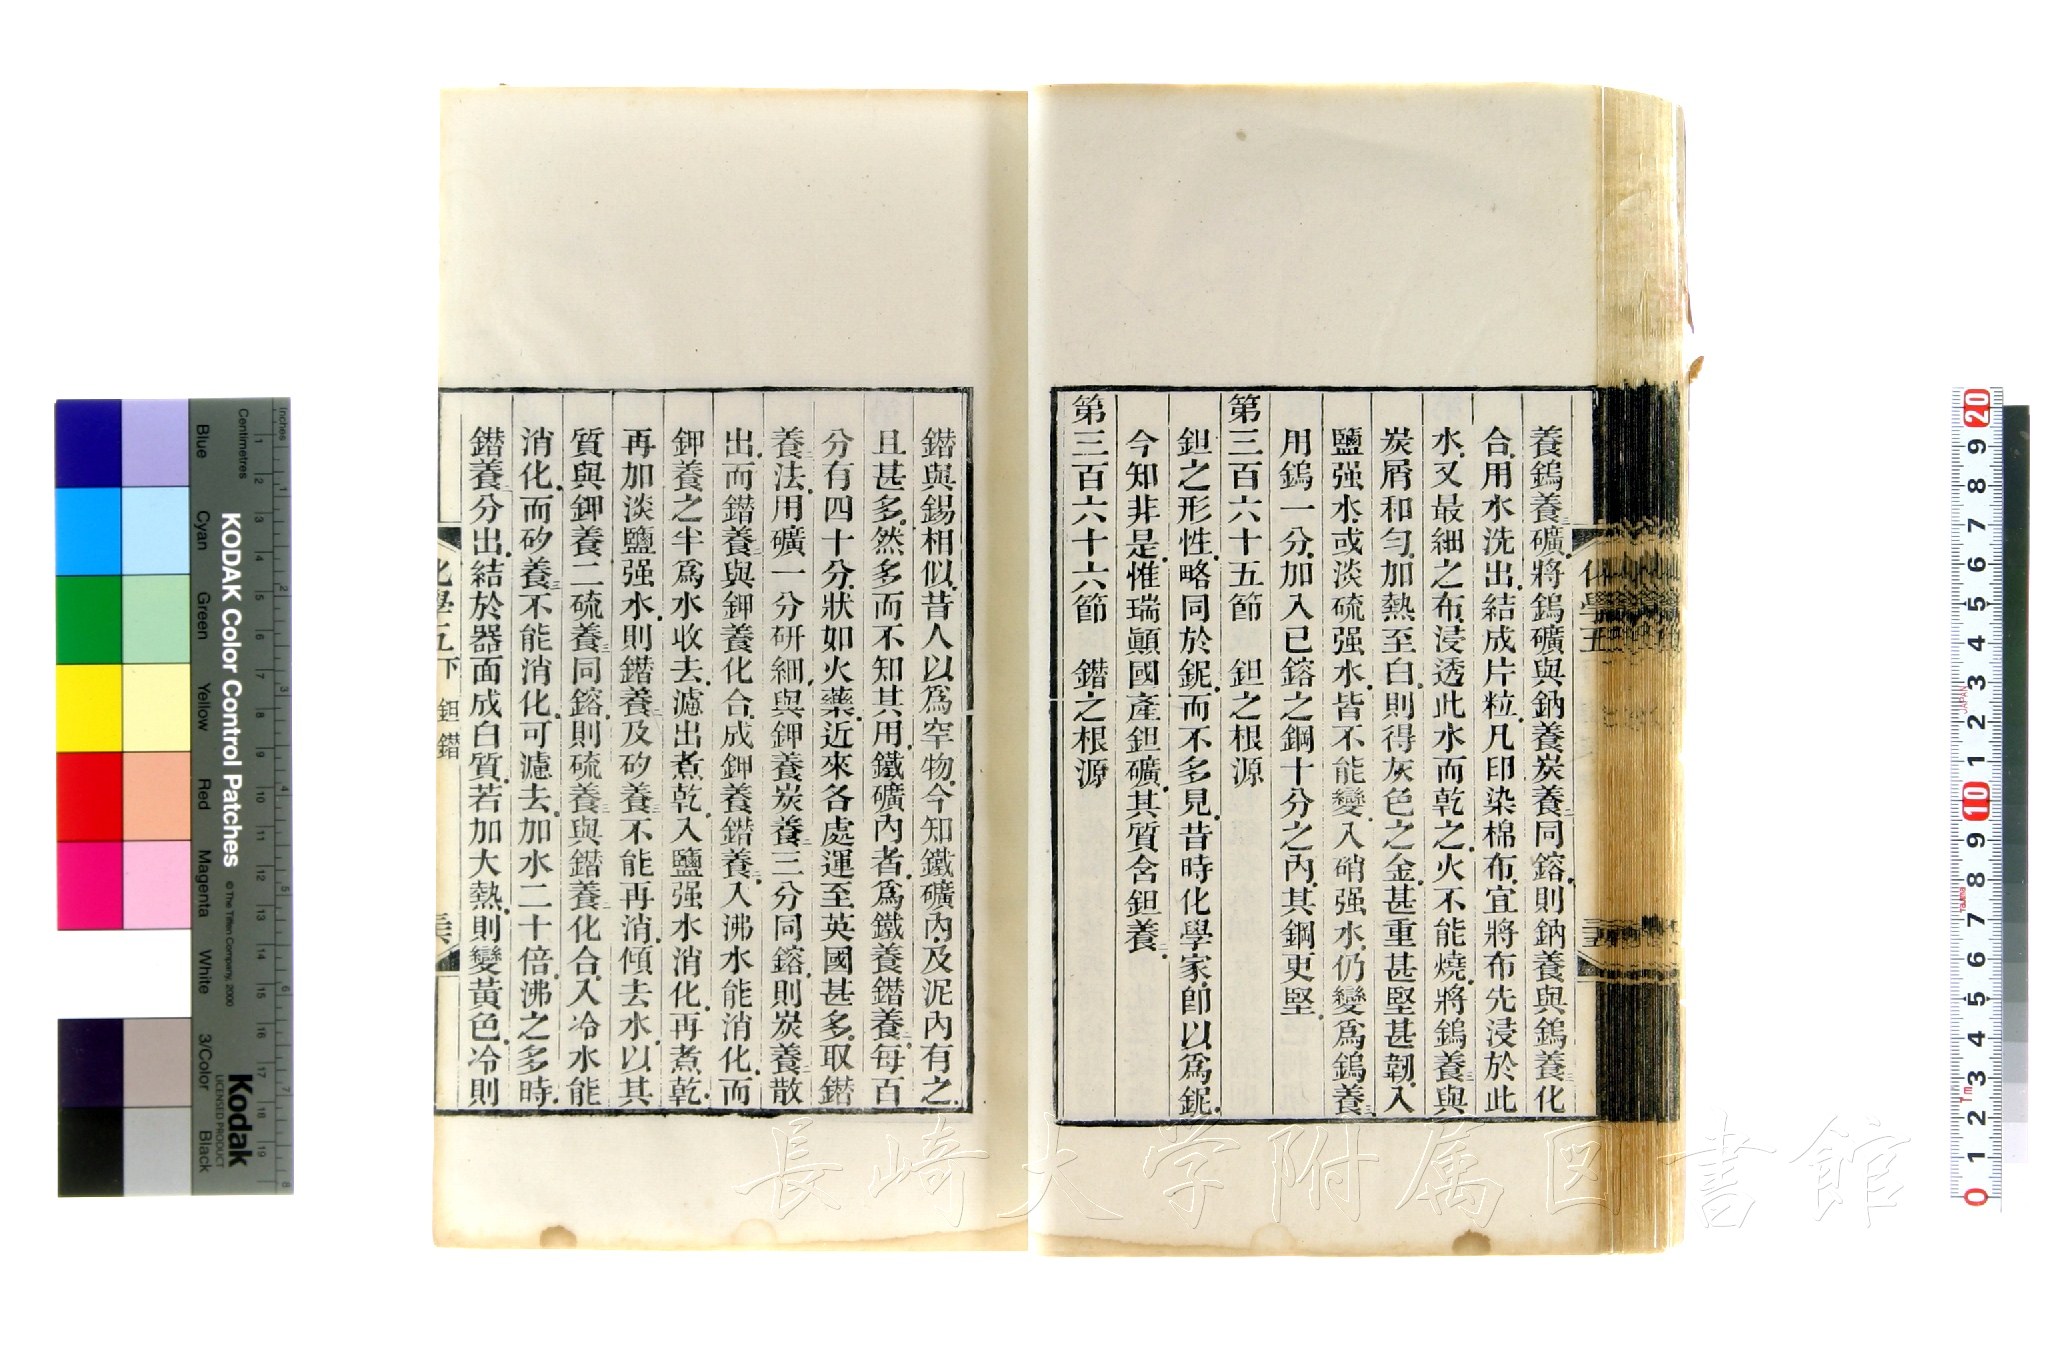 養鎢養礦.將鎢礦與鈉養炭養二同鎔.則鈉養與鎢養三化
合.用水洗出.結成片粒.凡印染棉布.宜將布先浸於此
水.又最細之布.浸透此水而乾之.火不能燒.將鎢養三與
炭屑和勻.加熱至白.則得灰色之金.甚重甚堅甚韌.入
鹽强水.或淡硫强水.皆不能變.入硝强水.仍變爲鎢養三.
用鎢一分.加入已鎔之鋼十分之內.其鋼更堅.
第三百六十五節 鉭之根源
鉭之形性.略同於鈮.而不多見.昔時化學家.卽以爲鈮.
今知非是.惟瑞顚國產鉭礦.其質含鉭養三.
第三百六十六節 鐟之根源
化學五
鐟與錫相似.昔人以爲罕物.今知鐵礦內.及泥內有之.
且甚多.然多而不知其用.鐵礦內者.爲鐵養鐟養二.每百
分有四十分.狀如火藥.近來各處運至英國甚多.取鐟
養二法.用礦一分研細.與鉀養炭養二三分同鎔.則炭養二散
出.而鐟養二與鉀養化合.成鉀養鐟養二.入沸水能消化.而
鉀養之半爲水收去.濾出煮乾.入鹽强水消化.再煮乾.
再加淡鹽强水.則鐟養二及矽養三不能再消.傾去水.以其
質與鉀養二硫養三同鎔.則硫養三與鐟養二化合.入冷水能
消化.而矽養三不能消化.可濾去.加水二十倍.沸之多時.
鐟養二分出.結於器面成白質.若加大熱.則變黃色.冷則
化學五下 鉭鐟
KODAK Color Control Patches
©The Tiffen Company, 2000
Kodak
LICENSED PRODUCT
Inches
Centimetres
Blue Cyan Green Yellow Red Magenta White 3/Color Black
長崎大学附属図書館
JAPAN